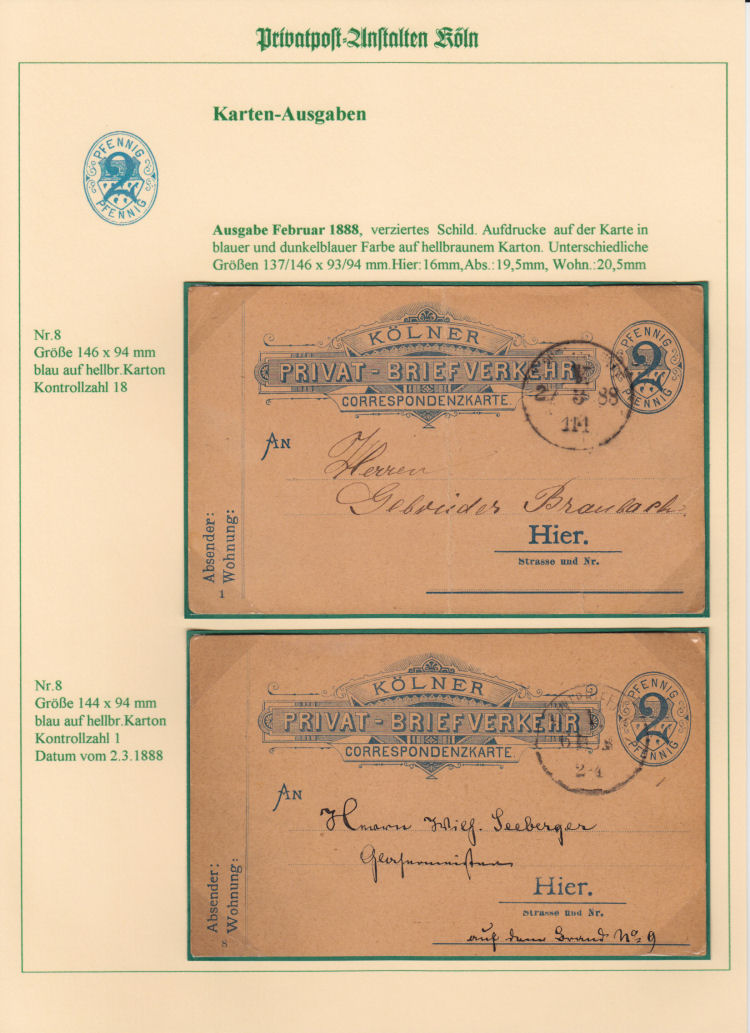 Privatpost-Anstalten Köln
Karten-Ausgaben
PFENNIG
2
PFENNIG
Ausgabe Februar 1888, verziertes Schild. Aufdrucke auf der Karte in
blauer und dunkelblauer Farbe auf hellbraunem Karton. Unterschiedliche
Größen 137/146 x 93/94 mm.Hier:16mm,Abs.:19,5mm, Wohn.:20,5mm
Nr.8
Größe 146 x 94 mm
blau auf hellbr.Karton
Kontrollzahl 18
KÖLNER
PRIVAT-BRIEFVERKEHR
CORRESPONDENZKARTE
PFENNIG
2
PFENNIG
27 88
11-1
AN
Herren
Gebrüder Braubach.
Hier.
Strasse und Nr.
Absender:
Wohnung:
1
Nr.8
Größe 144 x 94 mm
blau auf hellbr.Karton
Kontrollzahl 1
Datum vom 2.3.1888
KÖLNER
PRIVAT-BRIEFVERKEHR
CORRESPONDENZKARTE.
PFENNIG
2
PFENNIG
2-4
AN
Herrn Wilh. Seeberger
Glasermeister
Hier.
Strasse und Nr.
auf dem Brand No. 9
Absender:
Wohnung:
8